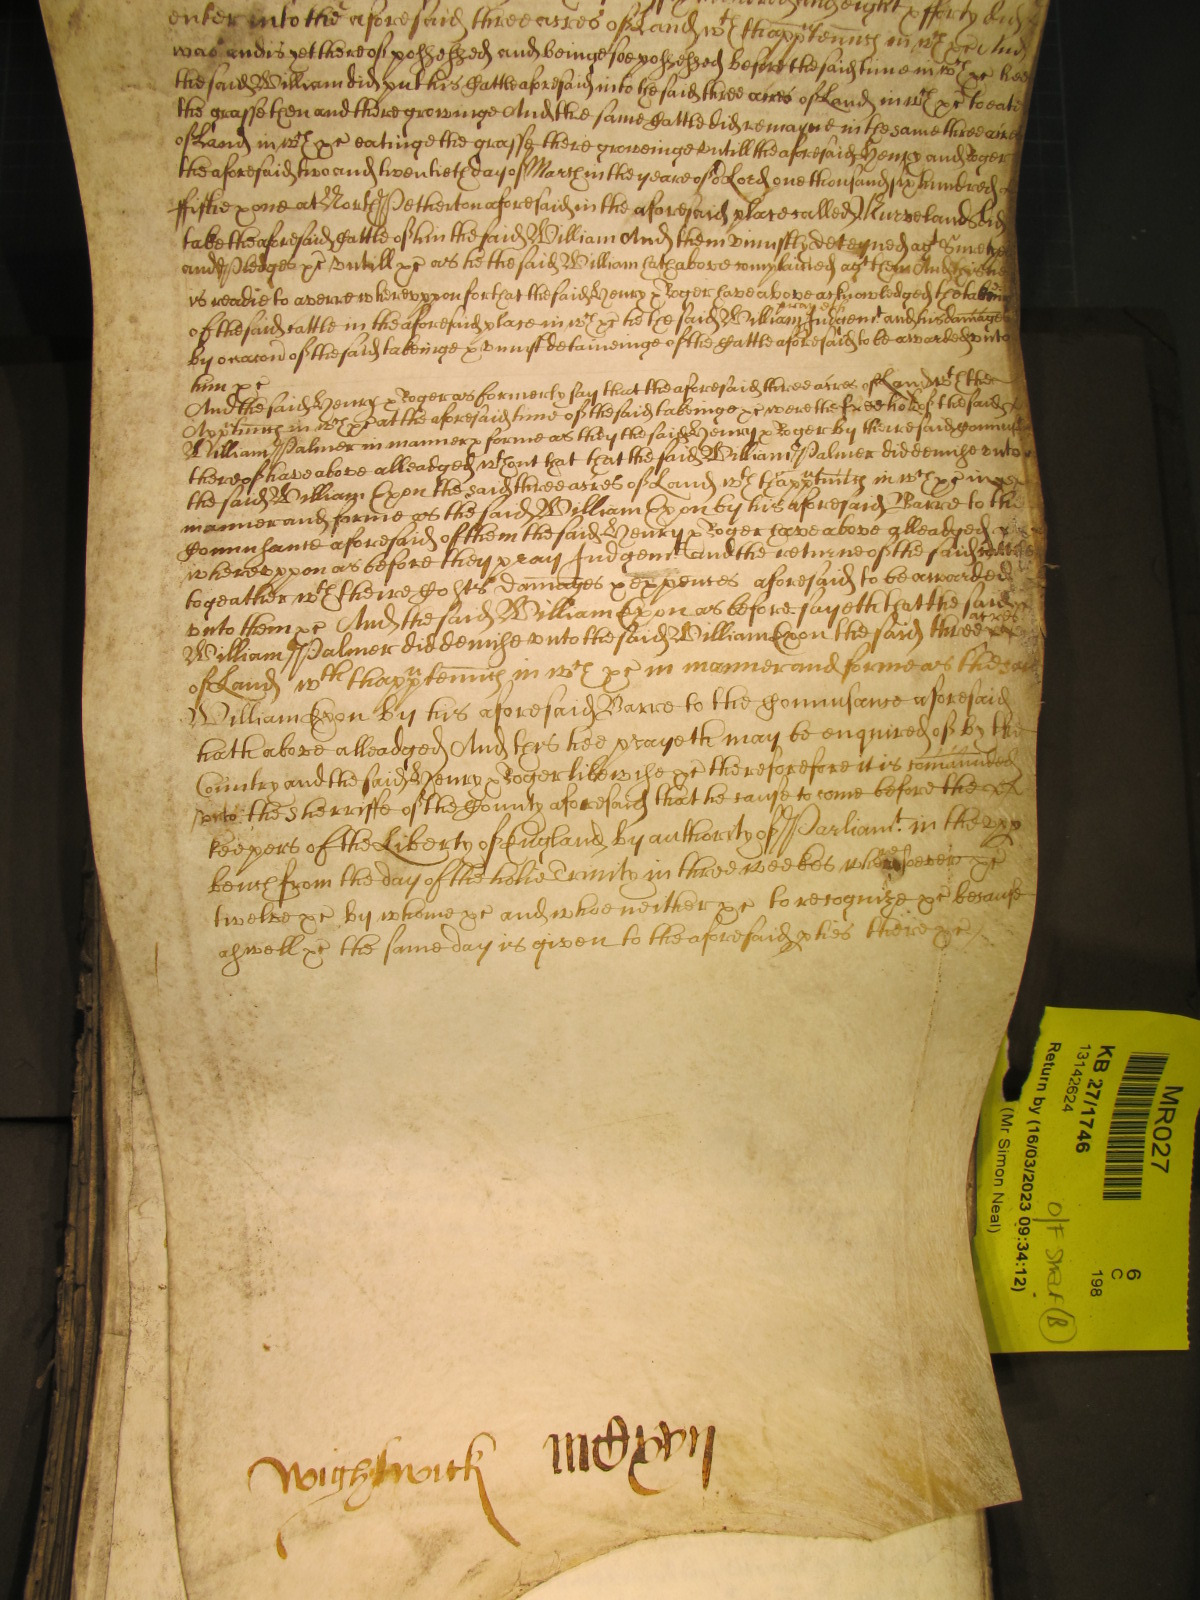 enter into the aforesaid three acres of Land wth thapptennces in wch &c And
was and is yet thereof possessed and beinge soe possessed before the said time in wch &c hee
the said William did put his Cattle aforesaid into the said three acres of Land in wch &c to eate
the grasse then and there growinge And the same Cattle did remayne in the same three acres
of Land in wch &c eatinge the grasse there groweinge untill the aforesaid Henry and Roger
the aforesaid two and twentieth day of March in the yeare of or Lord one thousand six hundred
fiftie & one at North Petherton aforesaid in the aforesaid place called did
take the aforesaid Cattle of him the said William And them uniustly deteyned agt
and Pledges &c untill &c as he the said William hath above complained agt them And this hee
is readie to averre whereuppon for that the said Henry & Roger have above acknowledged the takeing
of the said cattle in the aforesaid place in wch &c he the said William prayeth Judgemt and his damages
by occasion of the said takeinge & uniust detaineinge of the Cattle aforesaid to be awarded unto
him &c
And the said Henry & Roger as formerly say that the aforesaid three acres of Land wth the
Apptennces in wch &c at the aforesaid time of the said takeinge &c were the freehold of the said
William Palmer in manner & forme as they the said Henry & Roger by theire said Connusance
thereof have above alleadged wthout that that the said William Palmer did demise unto
the said William Exon the said three acres of Land wth thapptennces in wch &c in
manner and forme as the said William Exon by his aforesaid Barre to the
Connusance aforesaid of them the said Henry & Roger have above alleadged
whereuppon as before they pray Judgemt and the returne of the said cattle
togeather wth theire Costs damages & expences aforesaid to be awarded
unto them &c And the said William Exon as before sayeth that the said
William Palmer did demise unto the said William Exon the said three acres
of Land wth thapptennces in wch &c in manner and forme as the said
William Exon by his aforesaid Barre to the Connusance aforesaid
hath above alleadged And this hee prayeth may be enquired of by the
Country and the said Henry & Roger likewise &c therefore it is commanded
unto the Sherriffe of the County aforesaid that he cause to come before the
keepers of the Liberty of England by authority of Parliamt in the upp
bench from the day of the holie Trinity in three weekes wheresoever &c
twelve &c by whome &c and whoe neither &c to recognize &c because
aswell &c the same day is given to the aforesaid pties there &c
Wightwick
MR027
KB 27/1746
13142624
6
C
198
Return by (16/03/2023 09:34:12)
(Mr Simon Neal)
O/F Shelf (B)